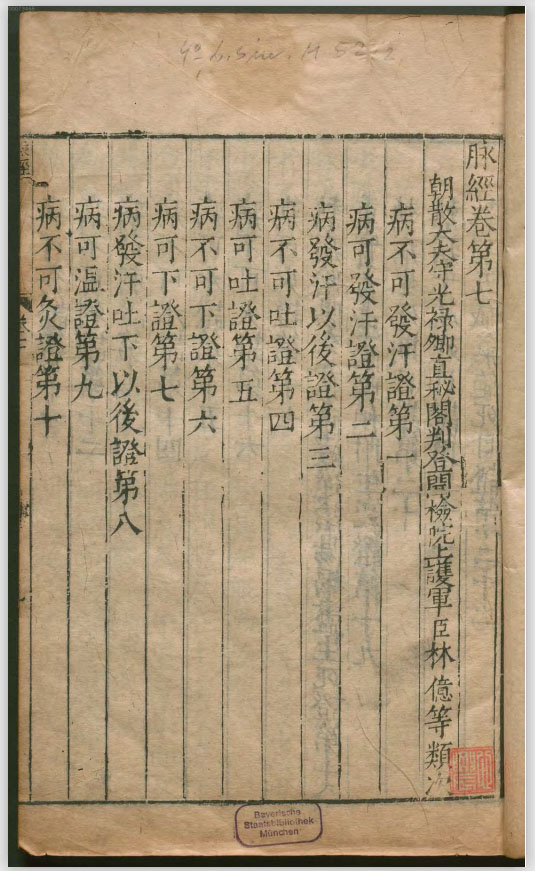 4° L. sin. H 52,2
脉經卷第七
朝散大夫守光祿卿直秘閣判登聞檢院上護軍臣林億等類次
病不可發汗證第一
病可發汗證第二
病發汗以後證第三
病不可吐證第四
病可吐證第五
病不可下證第六
病可下證第七
病發汗吐下以後證第八
病可溫證第九
病不可灸證第十
Bayerische
Staatsbibliothek
München